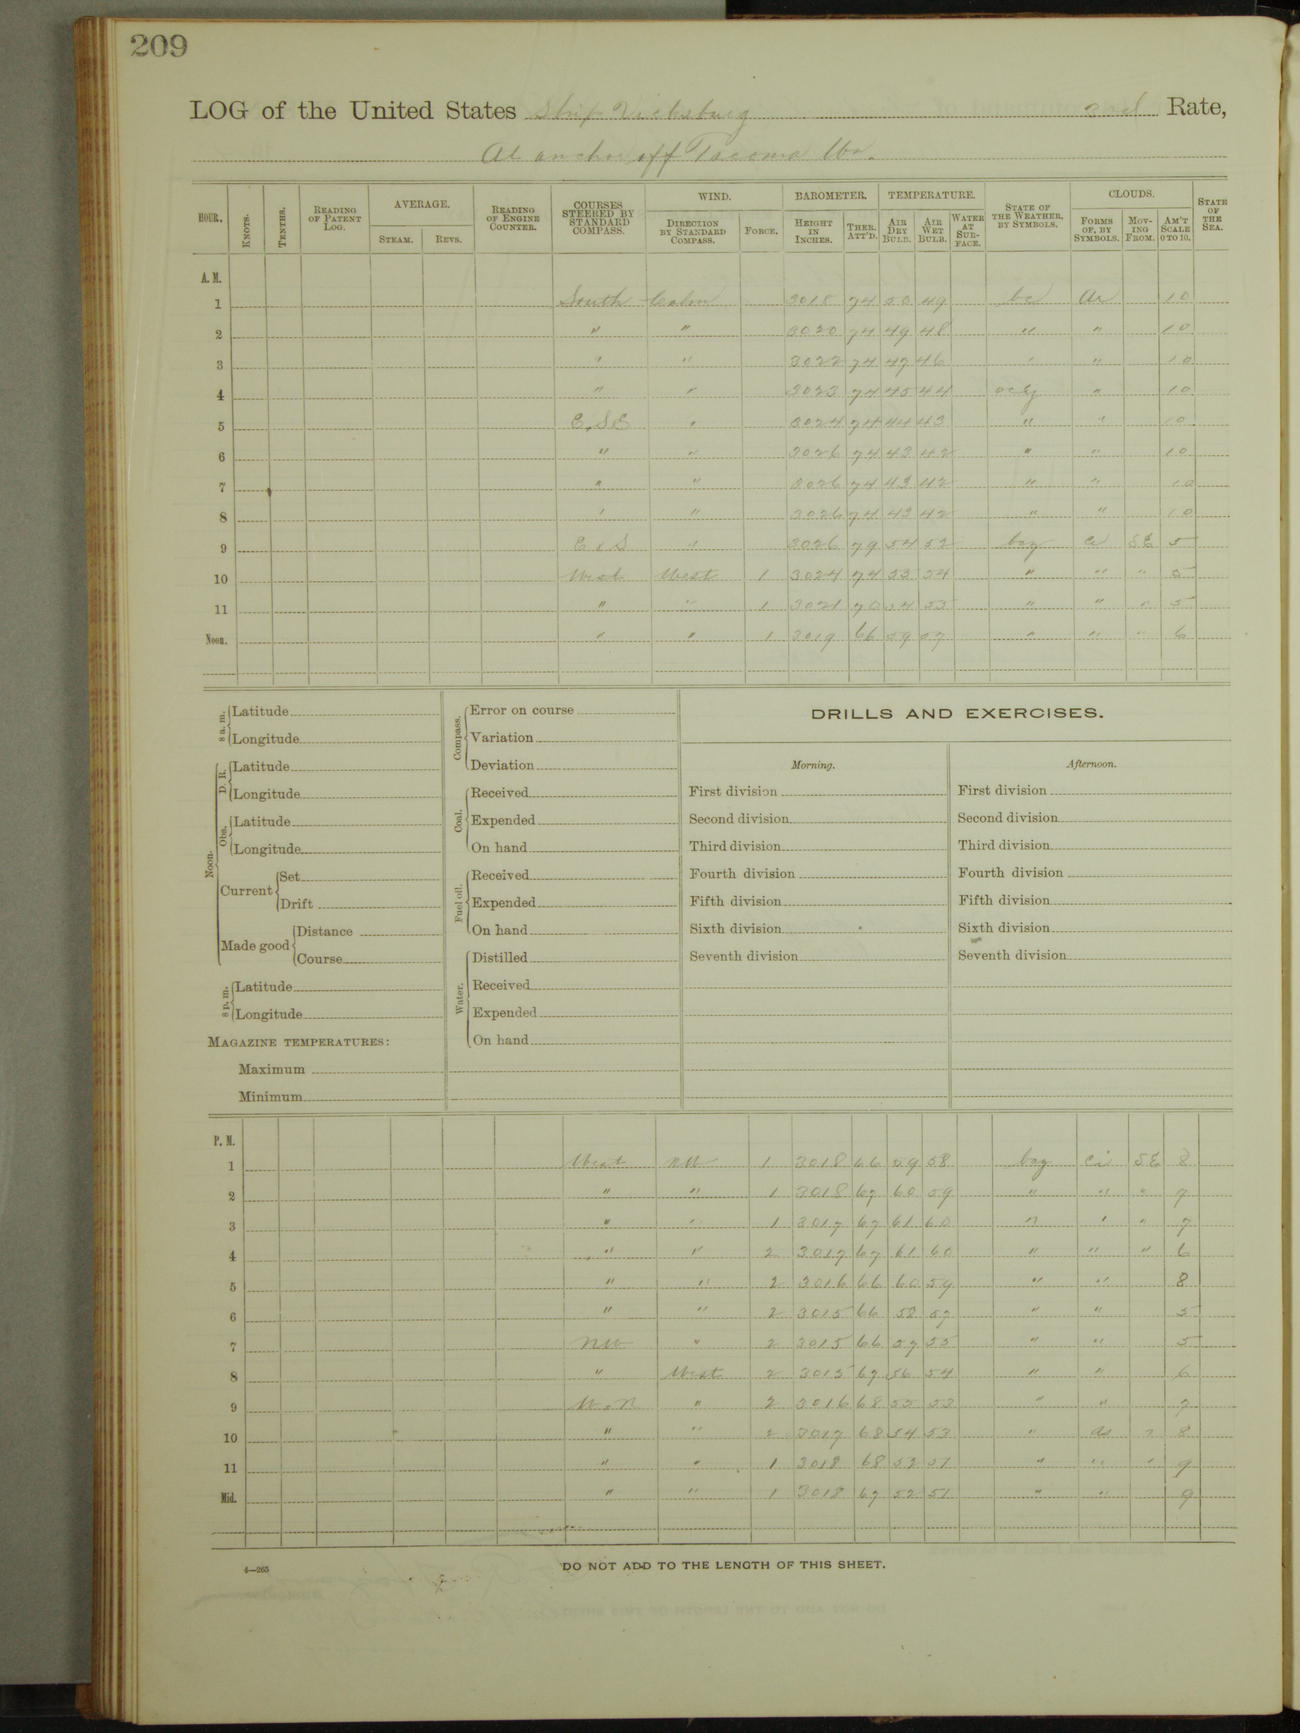 209
LOG of the United States Ship Vicksburg 2nd Rate,
At anchor off Tacoma Wn.
HOUR. KNOTS. TENTHS. READING OF PATENT LOG. AVERAGE. STEAM. REVS. READING OF ENGINE COUNTER. COURSES STEERED BY STANDARD COMPASS. WIND. DIRECTION BY STANDARD COMPASS. FORCE. BAROMETER. HEIGHT IN INCHES. THER. ATT'D. TEMPERATURE. AIR DRY BULB. AIR WET BULB. WATER AT SURFACE. STATE OF THE WEATHER, BY SYMBOLS. CLOUDS. FORMS OF, BY SYMBOLS. MOVING FROM. AM'T SCALE 0 TO 10. STATE OF THE SEA.
A.M.
1 South Calm 3018 74 50 49 bc 10
2 " " 3020 74 49 48 " " 10
3 " " 3022 74 47 46 " " 10
4 " " 3023 74 45 44 " 10
5 E.SE " 3024 74 44 43 " " 10
6 " " 3026 74 43 42 " " 10
7 " " 3026 74 43 42 " " 10
8 " " 3026 74 43 42 " " 10
9 ExS " 3026 79 54 52 bcz Ci SE 5
10 West West 1 3024 74 " " " 5
11 " " 1 3021 70 54 53 " " " 5
Noon. " " 1 3019 66 59 57 " " " 6
8 a.m. Latitude
Longitude
Noon. D. R. Latitude
Longitude
Obs. Latitude
Longitude
Current Set
Drift
Made good Distance
Course
8 p.m. Latitude
Longitude
MAGAZINE TEMPERATURES:
Maximum
Minimum
Compass. Error on course
Variation
Deviation
Coal. Received
Expended
On hand
Fuel oil. Received
Expended
On hand
Water. Distilled
Received
Expended
On hand
DRILLS AND EXERCISES.
Morning.
First division
Second division
Third division
Fourth division
Fifth division
Sixth division
Seventh division
Afternoon.
First division
Second division
Third division
Fourth division
Fifth division
Sixth division
Seventh division
P. M.
1 West NW 1 3018 66 59 58 bcz Ci SE 8
2 " " 1 3018 67 60 59 " " " 7
3 " " 1 3017 67 61 60 " " " 7
4 " " 2 3017 67 61 60 " " " 6
5 " " 2 3016 66 60 59 " " 8
6 " " 2 3015 66 58 57 " " 5
7 NW " 2 3015 66 57 55 " " 5
8 " West 2 3015 67 56 54 " " 6
9 WxN " 2 3016 68 55 53 " " 7
10 " " 2 3017 68 54 53 " " 8
11 " " 1 3018 68 52 51 " " " 9
Mid. " " 1 3018 67 52 51 " " 9
4—265
DO NOT ADD TO THE LENGTH OF THIS SHEET.